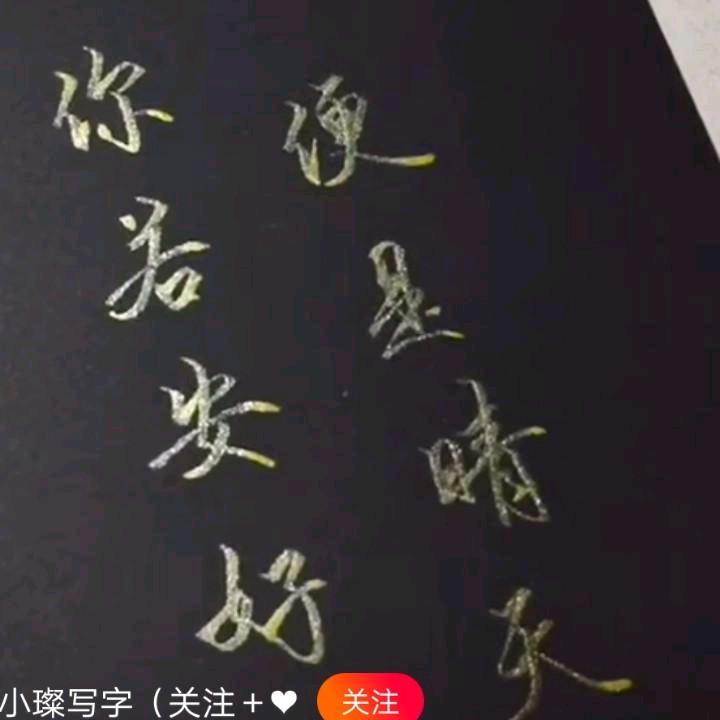 你若安好
便是晴天
小璨写字（关注+❤
关注